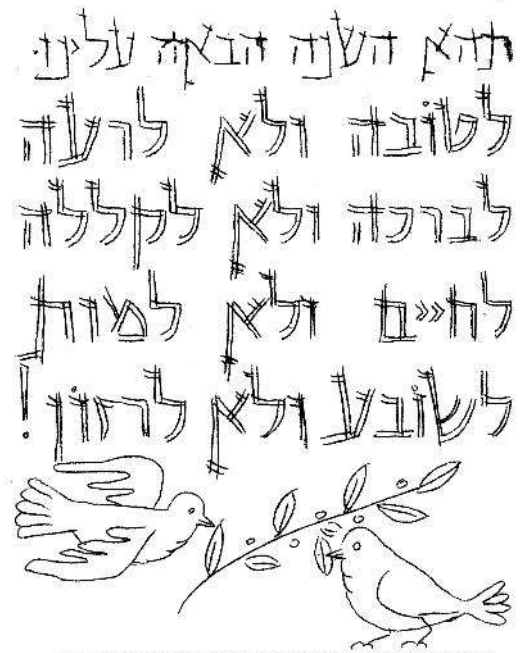 תהא השנה הבאה עלינו
לטובה ולא לרעה
לברכה ולא לקללה
לחיים ולא למות
לשובע ולא לרזון!